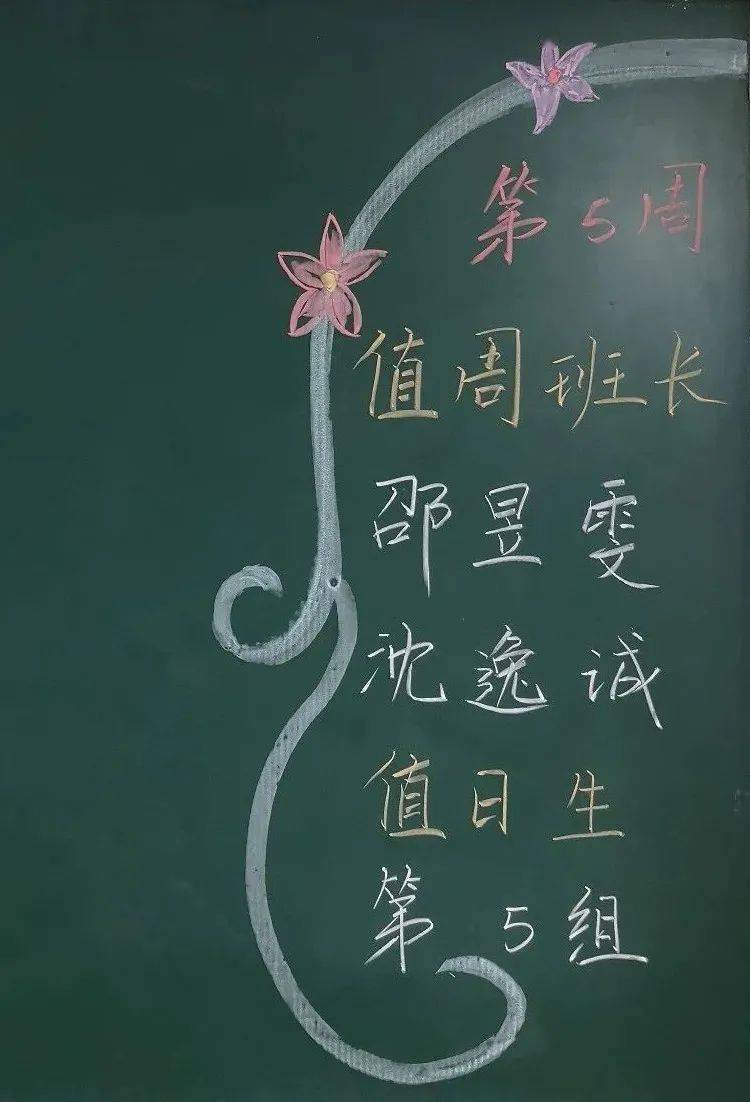 第5周
值周班长
邵昱雯
沈逸诚
值日生
第5组